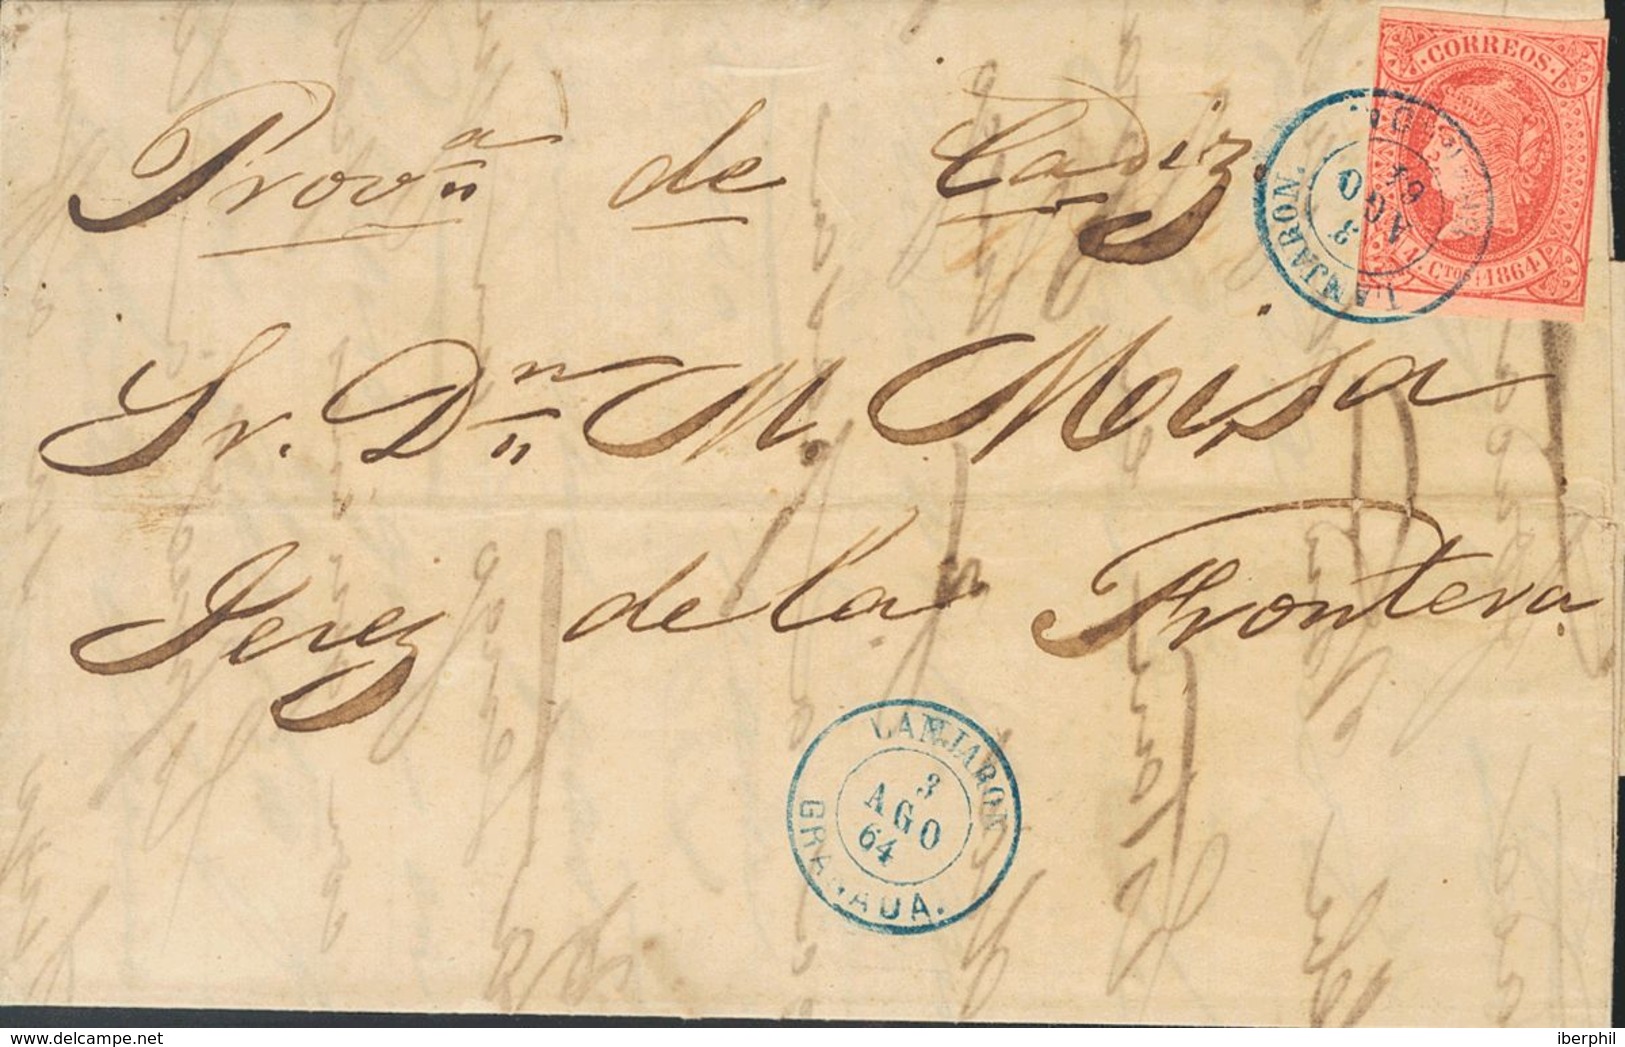 CORREOS
4 CTOS 1864
LANJARON.
3
AGO
64
Prov.ª de Cadiz.
Sr. Dn M. Meisa
Jerez de la Frontera.
LANJARON
3
AGO
64
GRANADA.
www.delcampe.net
iberphil